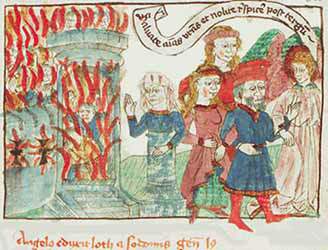 Saluate aias vras et nolite rspice post tergu
Angelo eduxit loth a sodomis gen 19